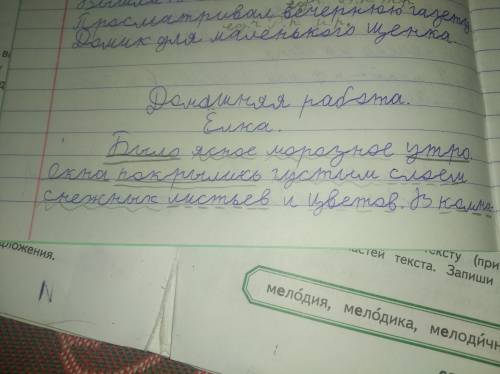 Просматривал вечернюю газету.
Домик для маленького щенка.
Домашняя работа.
Ёлка.
Было ясное морозное утро.
Окна покрылись густым слоем
снежных листьев и цветов. В комн-
тексту (при
астей текста. Запиши
дложения.
N
мело́дия, мело́дика, мелоди́чн